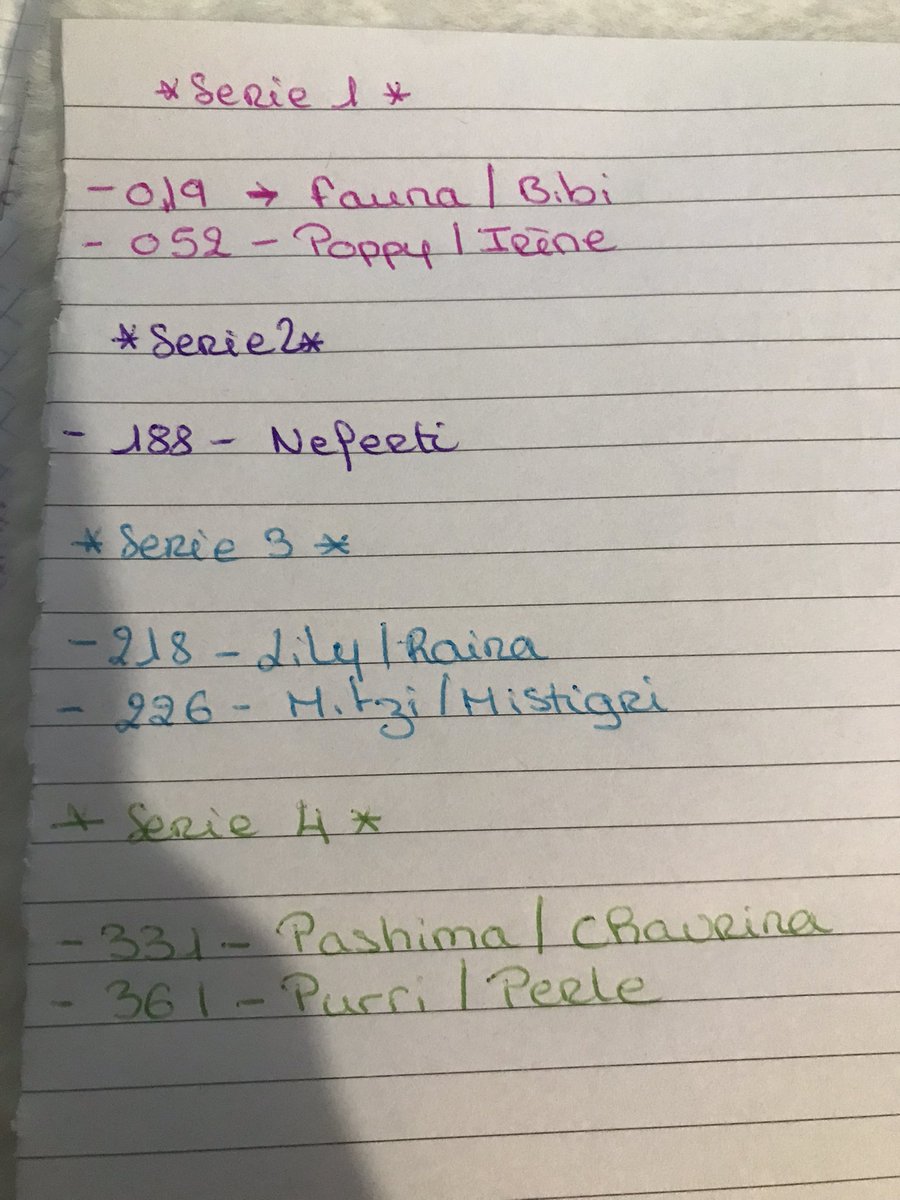 *Serie 1*
- 019 → Fauna / Bibi
- 052 - Poppy / Irène
*Serie 2*
- 188 - Neferti
*Serie 3*
- 218 - Lily / Raina
- 226 - Mitzi / Mistigri
*Serie 4*
- 331 - Pashima / Chavrina
- 361 - Purri / Perle